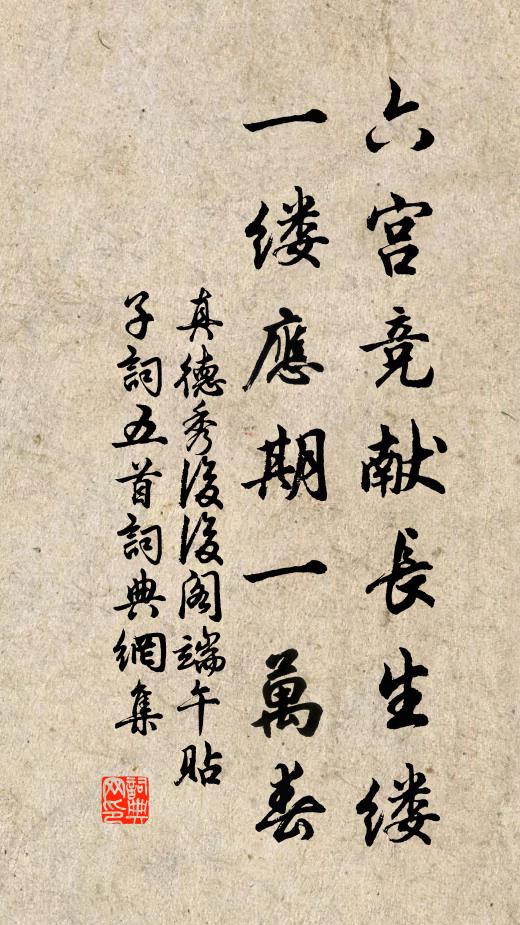 六宫竞献長生缕
一缕應期一萬春
真德秀後後阁端午貼
子詞五首詞典網集
詞典
网印